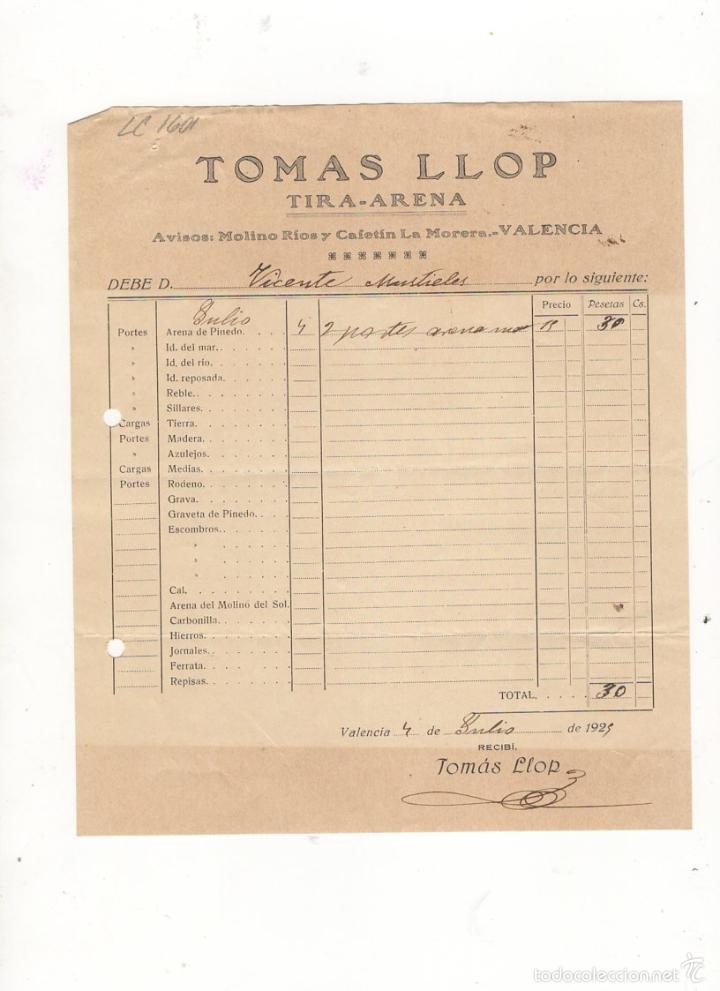 LC 1601
TOMAS LLOP
TIRA-ARENA
Avisos: Molino Ríos y Cafetín La Morera.-VALENCIA
DEBE D. Vicente Mustieles por lo siguiente:
Precio Pesetas Cs.
Julio
Portes Arena de Pinedo. 4 2 portes arena mar 15 30
» Id. del mar.
» Id. del río.
» Id. reposada
» Reble.
» Sillares.
Cargas Tierra.
Portes Madera.
» Azulejos.
Cargas Medias.
Portes Rodeno.
Grava.
Graveta de Pinedo.
Escombros.
»
»
»
Cal.
Arena del Molino del Sol.
Carbonilla.
Hierros.
Jornales.
Ferrata.
Repisas.
TOTAL. 30
Valencia 4 de Julio de 1925
RECIBÍ,
Tomás Llop
todocoleccion.net